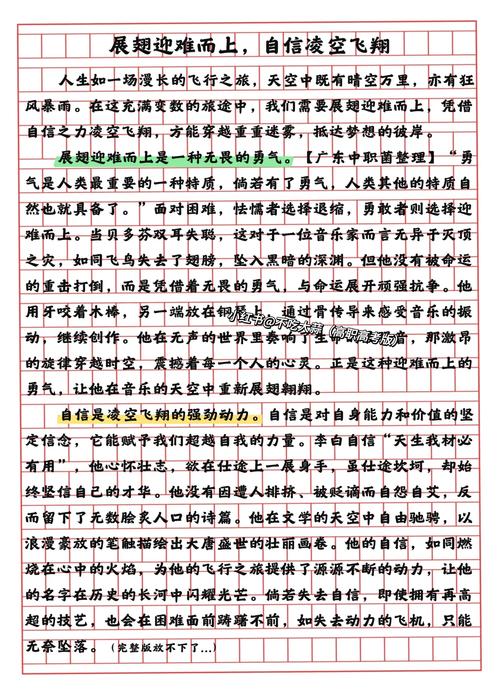 展翅迎难而上，自信凌空飞翔
人生如一场漫长的飞行之旅，天空中既有晴空万里，亦有狂
风暴雨。在这充满变数的旅途中，我们需要展翅迎难而上，凭借
自信之力凌空飞翔，方能穿越重重迷雾，抵达梦想的彼岸。
展翅迎难而上是一种无畏的勇气。【广东中职菌整理】“勇
气是人类最重要的一种特质，倘若有了勇气，人类其他的特质自
然也就具备了。”面对困难，怯懦者选择退缩，勇敢者则选择迎
难而上。当贝多芬双耳失聪，这对于一位音乐家而言无异于灭顶
之灾，如同飞鸟失去了翅膀，坠入黑暗的深渊。但他没有被命运
的重击打倒，而是凭借着无畏的勇气，与命运展开顽强抗争。他
用牙咬着木棒，另一端放在钢琴上，通过骨传导来感受音乐的振
动，继续创作。他在无声的世界里奏响了生命的强音，那激昂
的旋律穿越时空，震撼着每一个人的心灵。正是这种迎难而上的
勇气，让他在音乐的天空中重新展翅翱翔。
自信是凌空飞翔的强劲动力。自信是对自身能力和价值的坚
定信念，它能赋予我们超越自我的力量。李白自信“天生我材必
有用”，他心怀壮志，欲在仕途上一展身手，虽仕途坎坷，却始
终坚信自己的才华。他没有因遭人排挤、被贬谪而自怨自艾，反
而留下了无数脍炙人口的诗篇。他在文学的天空中自由驰骋，以
浪漫豪放的笔触描绘出大唐盛世的壮丽画卷。他的自信，如同燃
烧在心中的火焰，为他的飞行之旅提供了源源不断的动力，让他
的名字在历史的长河中闪耀光芒。倘若失去自信，即使拥有再高
超的技艺，也会在困难面前踌躇不前，如失去动力的飞机，只能
无奈坠落。（完整版放不下了...）
小红书@不吃大蒜（高职高考版）